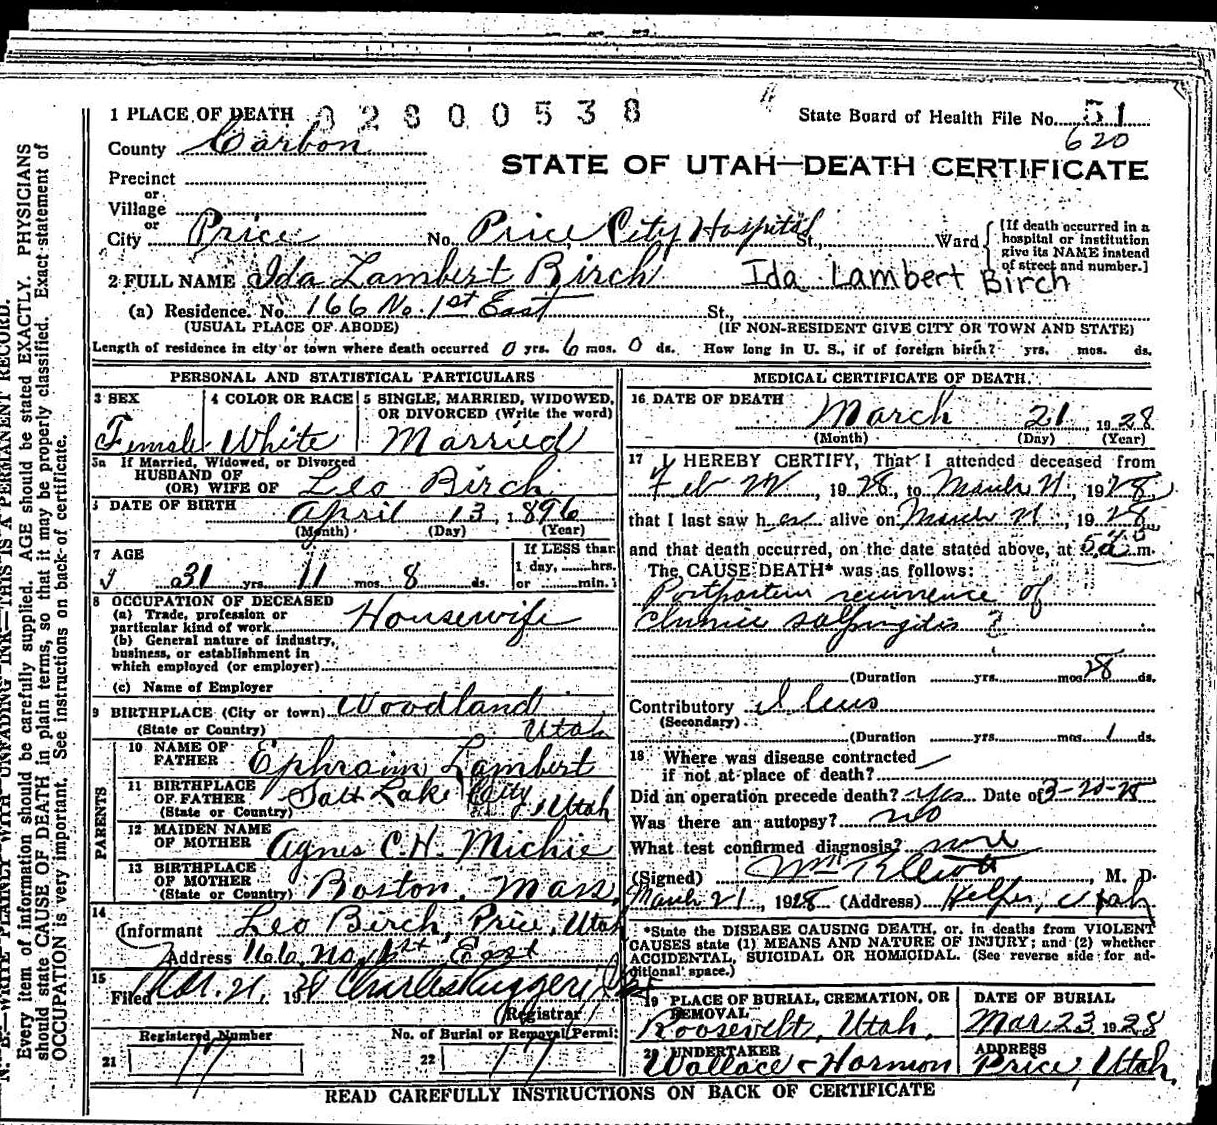 1 PLACE OF DEATH 02800538
State Board of Health File No. 51
620
County Carbon
STATE OF UTAH—DEATH CERTIFICATE
Precinct
or
Village
or
City Price No. Price City Hospital St., Ward
[If death occurred in a hospital or institution give its NAME instead of street and number.]
2 FULL NAME Ida Lambert Birch Ida Lambert Birch
(a) Residence. No. 166 No. 1st East St.,
(USUAL PLACE OF ABODE) (IF NON-RESIDENT GIVE CITY OR TOWN AND STATE)
Length of residence in city or town where death occurred 0 yrs. 6 mos. 0 ds. How long in U. S., if of foreign birth? yrs. mos. ds.
PERSONAL AND STATISTICAL PARTICULARS
3 SEX
Female
4 COLOR OR RACE
White
5 SINGLE, MARRIED, WIDOWED, OR DIVORCED (Write the word)
Married
5a If Married, Widowed, or Divorced
HUSBAND OF
(OR) WIFE OF Leo Birch
DATE OF BIRTH April 13, 1896
(Month) (Day) (Year)
7 AGE
31 yrs. 11 mos. 8 ds.
If LESS than
1 day, hrs.
or min.
8 OCCUPATION OF DECEASED
(a) Trade, profession or
particular kind of work Housewife
(b) General nature of industry,
business, or establishment in
which employed (or employer)
(c) Name of Employer
9 BIRTHPLACE (City or town) Woodland
(State or Country) Utah
PARENTS
10 NAME OF
FATHER Ephraim Lambert
11 BIRTHPLACE
OF FATHER Salt Lake City, Utah
(State or Country)
12 MAIDEN NAME
OF MOTHER Agnes C. H. Michie
13 BIRTHPLACE
OF MOTHER
(State or Country) Boston, Mass.
14
Informant Leo Birch, Price, Utah
Address 166 No. 1st East
15
Filed Mar. 21, 1928 Charles Ruggeri
Registrar
Registered Number
21 17
No. of Burial or Removal Permit
22 17
MEDICAL CERTIFICATE OF DEATH.
16 DATE OF DEATH
March 21, 1928
(Month) (Day) (Year)
17 I HEREBY CERTIFY, That I attended deceased from
Feb 22, 1928, to March 21, 1928,
that I last saw her alive on March 21, 1928
and that death occurred, on the date stated above, at m.
The CAUSE DEATH* was as follows:
Postpartem recurrence of
Chronic salpingitis ?
(Duration yrs. mos. 28 ds.
Contributory Ileus
(Secondary)
(Duration yrs. mos. 1 ds.
18 Where was disease contracted
if not at place of death?
Did an operation precede death? Yes Date of 3-20-28
Was there an autopsy? no
What test confirmed diagnosis? none
(Signed) M. D.
March 21, 1928 (Address) Helper, Utah
*State the DISEASE CAUSING DEATH, or, in deaths from VIOLENT
CAUSES state (1) MEANS AND NATURE OF INJURY; and (2) whether
ACCIDENTAL, SUICIDAL OR HOMICIDAL. (See reverse side for ad-
ditional space.)
19 PLACE OF BURIAL, CREMATION, OR
REMOVAL
Roosevelt, Utah.
DATE OF BURIAL
Mar 23 1928
20 UNDERTAKER
Wallace & Harmon
ADDRESS
Price, Utah.
READ CAREFULLY INSTRUCTIONS ON BACK OF CERTIFICATE
N. B.—WRITE PLAINLY WITH UNFADING INK—THIS IS A PERMANENT RECORD.
Every item of information should be carefully supplied. AGE should be stated EXACTLY. PHYSICIANS
should state CAUSE OF DEATH in plain terms, so that it may be properly classified. Exact statement of
OCCUPATION is very important. See instructions on back of certificate.